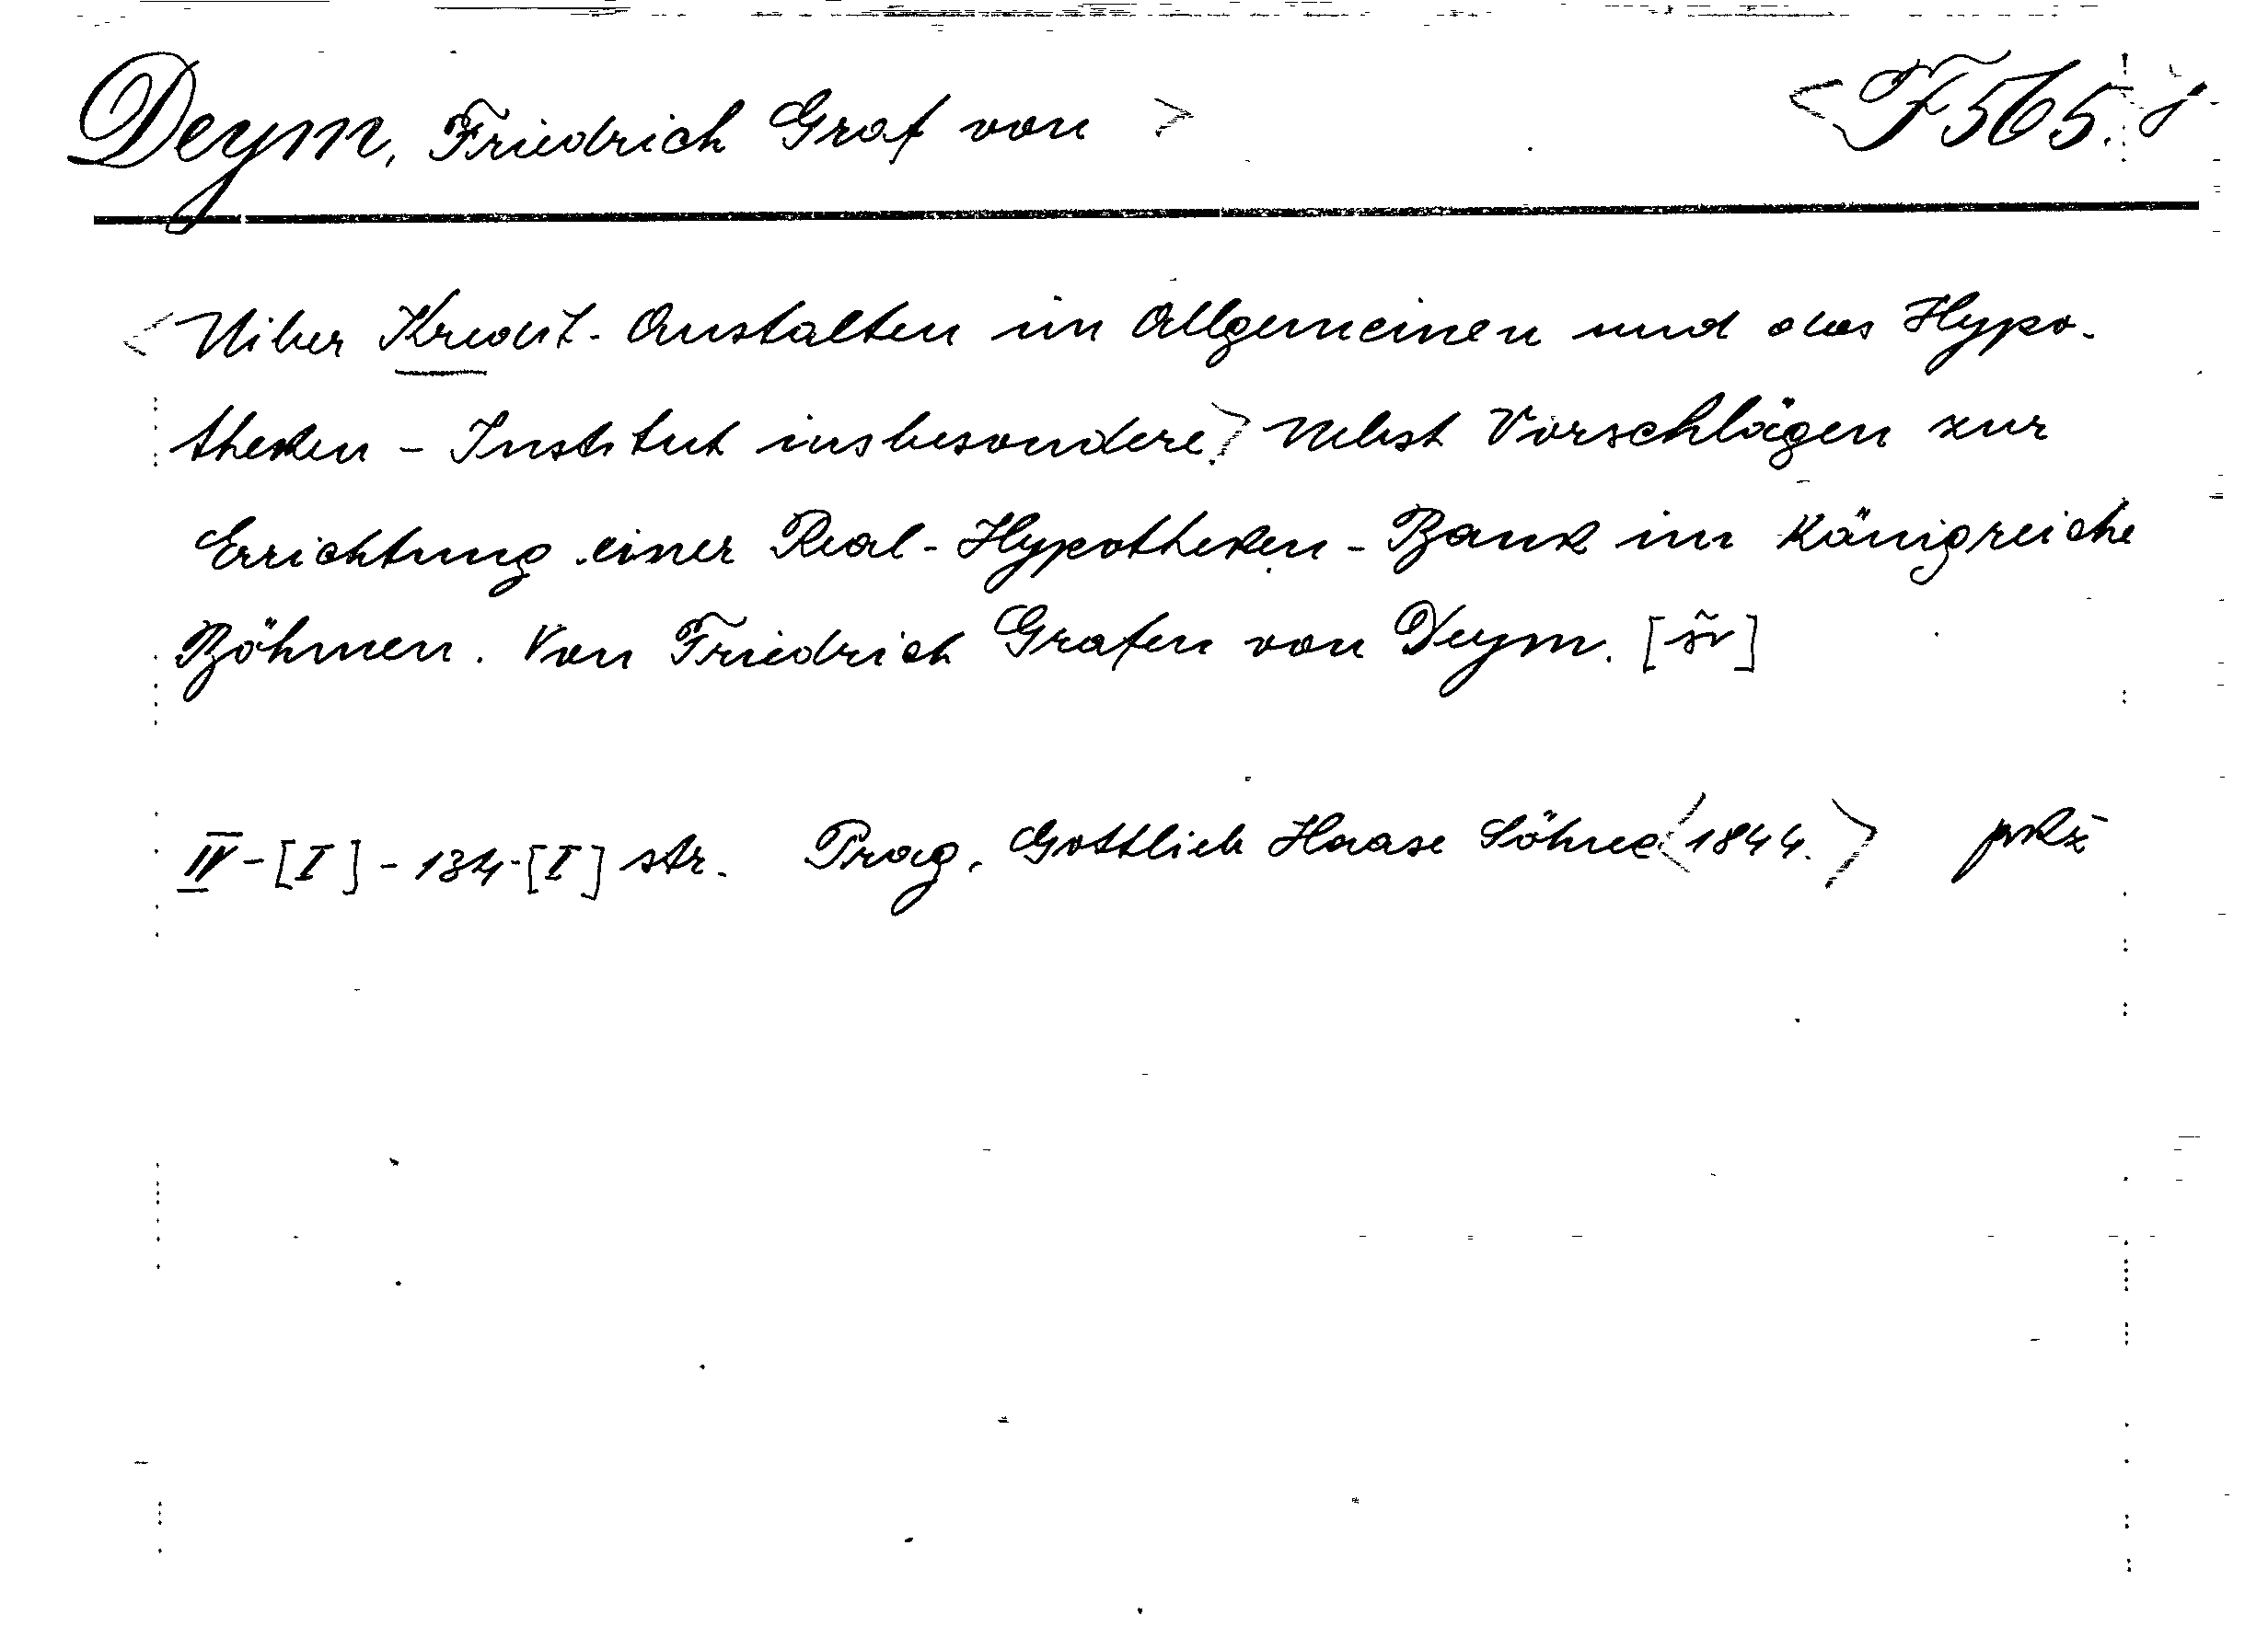 Deym, Friedrich Graf von > <F 565. j
<Uiber Kredit-Anstalten im Allgemeinen und das Hypo-
theken-Institut insbesondere.> Nebst Vorschlägen zur
Errichtung einer Real-Hypotheken-Bank im Königreiche
Böhmen. Von Friedrich Grafen von Deym. [šv]
IV-[I]-134-[I] str. Prag, Gottlieb Haase Söhne <1844.>